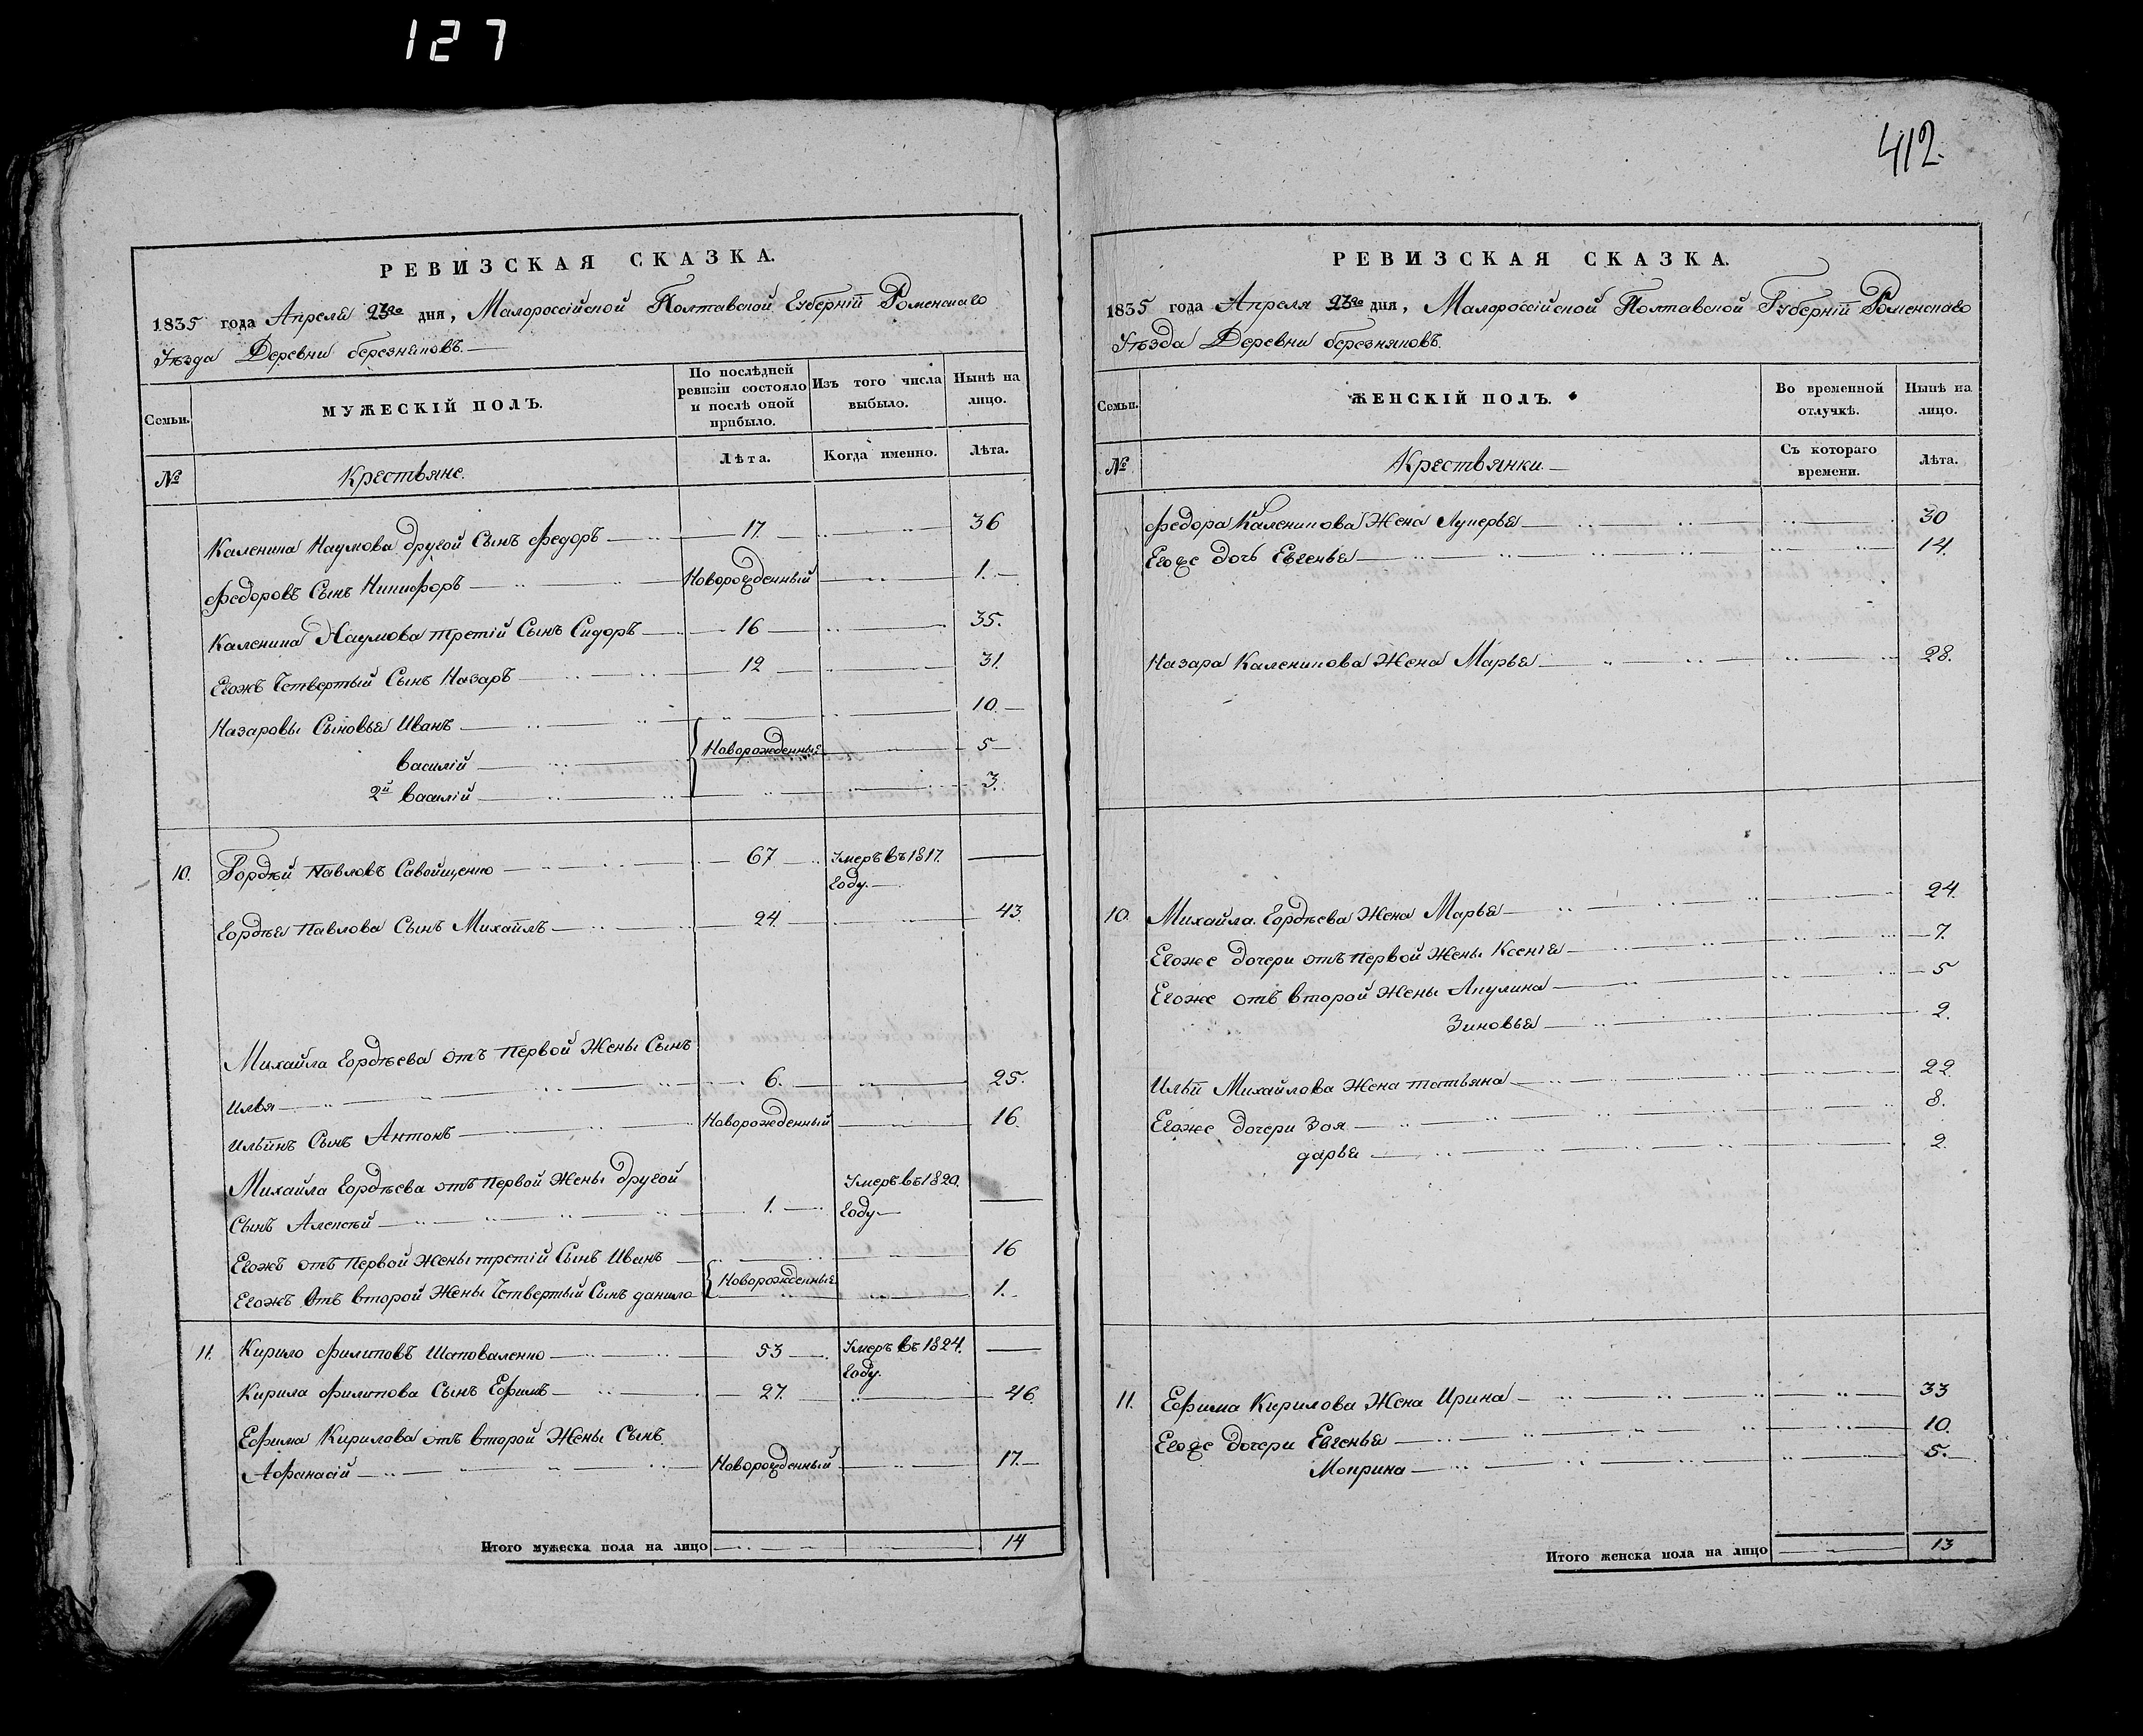 127
412.
РЕВИЗСКАЯ СКАЗКА.
1835 года Апреля 23го дня, Малороссійской Полтавской Губерніи Роменскаго
Уѣзда Деревни березняковъ.
Семьи.
МУЖЕСКІЙ ПОЛЪ.
По послѣдней ревизіи состояло и послѣ оной прибыло.
Изъ того числа выбыло.
Нынѣ на лицо.
№
Крестьяне.
Лѣта.
Когда именно.
Лѣта.
Каленика Наумова другой Сынъ Федоръ 17. 36
Федоровъ Сынъ Никифоръ Новорожденный 1.
Каленика Наумова третій Сынъ Сидоръ 16 35.
Егожъ Четвертый Сынъ Назаръ 12 31.
Назаровы Сыновья Иванъ 10.
Василій Новорожденные 5
2й Василій 3.
10. Гордѣй Павловъ Савойщенко 67 Умеръ въ 1817.
Году.
Гордѣя Павлова Сынъ Михайлъ 24. 43.
Михайла Гордѣева отъ первой Жены Сынъ
Илья 6. 25.
Ильинъ Сынъ Антонъ Новорожденный 16.
Михайла Гордѣева отъ первой Жены другой
Сынъ Алексѣй 1. Умеръ въ 1820.
Году
Егожъ отъ первой Жены третій Сынъ Иванъ 16
Егожъ Отъ второй Жены Четвертый Сынъ данило Новорожденные 1.
11. Кирило Филиповъ Шаповаленко 53 Умеръ въ 1824.
Году.
Кирила Филипова Сынъ Ефимъ 27. 46.
Ефима Кирилова отъ второй Жены Сынъ
Афанасій Новорожденный 17.
Итого мужеска пола на лицо 14
РЕВИЗСКАЯ СКАЗКА.
1835 года Апреля 23го дня, Малороссійской Полтавской Губерніи Роменскаго
Уѣзда Деревни березняковъ.
Семьи.
ЖЕНСКІЙ ПОЛЪ.
Во временной отлучкѣ.
Нынѣ на лицо.
№
Крестьянки.
Съ котораго времени.
Лѣта.
Федора Каленикова Жена Лукерья 30
Егоже дочь Евгенья 14.
Назара Каленикова Жена Марья 28.
10. Михайла Гордѣева Жена Марья 24.
Егоже дочери отъ первой Жены Ксенія 7.
Егоже отъ второй Жены Акулина 5
Зиновья 2.
Ильи Михайлова Жена татьяна 22
Егоже дочери Зоя 8.
дарья 2
11. Ефима Кирилова Жена Ирина 33
Егоже дочери Евгенья 10.
Мокрина 5.
Итого женска пола на лицо 13